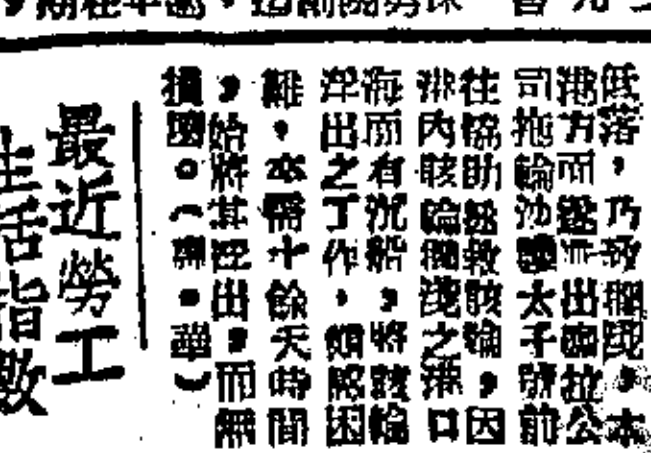 低落，乃致擱淺，本
港方面遂派出拉公
司拖輪沙太子號前
往協助拯救該輪，因
港內該輪擱淺之港口
海面有沉船，將該輪
浮出之工作，頗為困
難，亦需十餘天時間
，始將其拯出，而無
損壞。（華）
最近勞工
生活指數